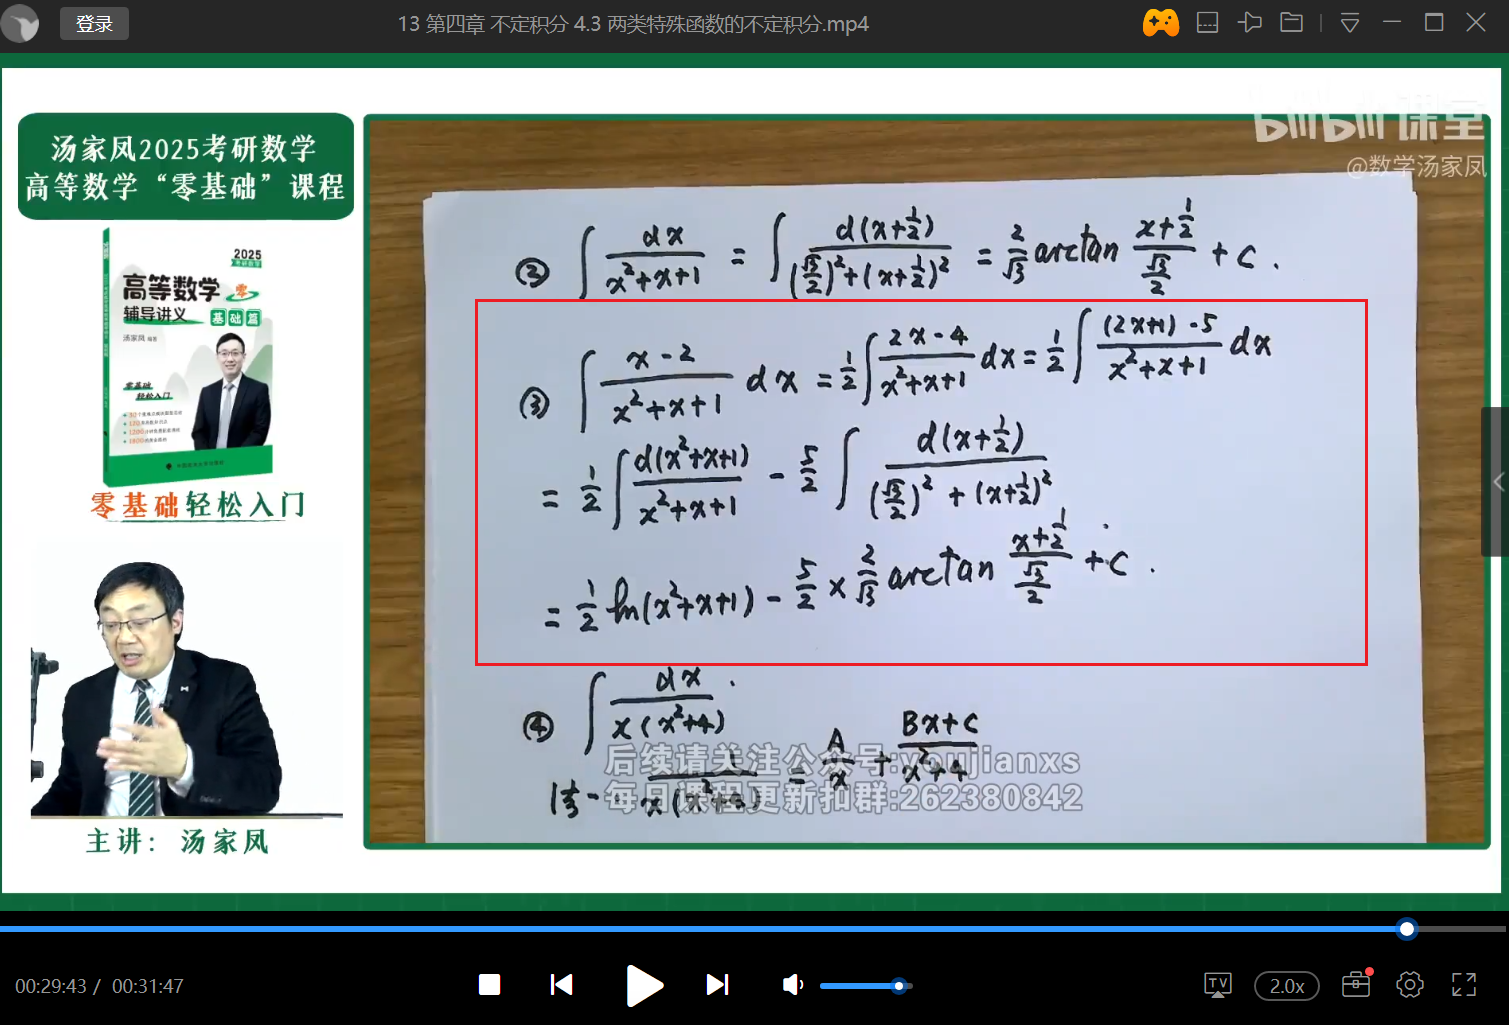 登录
13 第四章 不定积分 4.3 两类特殊函数的不定积分.mp4
汤家凤2025考研数学
高等数学“零基础”课程
2025
高等数学 零
辅导讲义 基础篇
汤家凤 编著
零基础
轻松入门
零基础轻松入门
主讲：汤家凤
bilibili课堂
@数学汤家凤
② ∫ dx/(x²+x+1) = ∫ d(x+1/2)/((√3/2)²+(x+1/2)²) = 2/√3 arctan (x+1/2)/(√3/2) + C .
③ ∫ (x-2)/(x²+x+1) dx = 1/2 ∫ (2x-4)/(x²+x+1) dx = 1/2 ∫ ((2x+1)-5)/(x²+x+1) dx
= 1/2 ∫ d(x²+x+1)/(x²+x+1) - 5/2 ∫ d(x+1/2)/((√3/2)²+(x+1/2)²)
= 1/2 ln(x²+x+1) - 5/2 × 2/√3 arctan (x+1/2)/(√3/2) + C .
④ ∫ dx/(x(x²+4)) .
法一 1/(x(x²+4)) = A/x + (Bx+C)/(x²+4)
后续请关注公众号:youjianxs
每日课程更新扣群:262380842
00:29:43 / 00:31:47
TV
2.0x